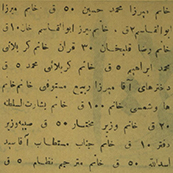 خانم میرزا محمد حسین ۵۰ ق خانم میرزا
ابوالقاسم ۲ ق . خانم میرزا ابوالقاسم خان ۱۰ ق
خانم رضا قلیخان ۳۰ قران خانم کربلائی
محمد ابراهیم ۵ ق خانم کربلائی محمد ۵ ق
دخترهای آقا میرزا ربیع مستوفی خانم خانم
ها و شمسی خانم ۱۰۰ ق خانم بشارت السلطنه
۲۰ ق خانم وزیر مختار ۵۰ ق صبیه وزیر
دفتر ۱۰ ق خانم جناب مستطاب آقا سید
اسدالله ۵۰ ق خانم مترجم نظام ۵ ق